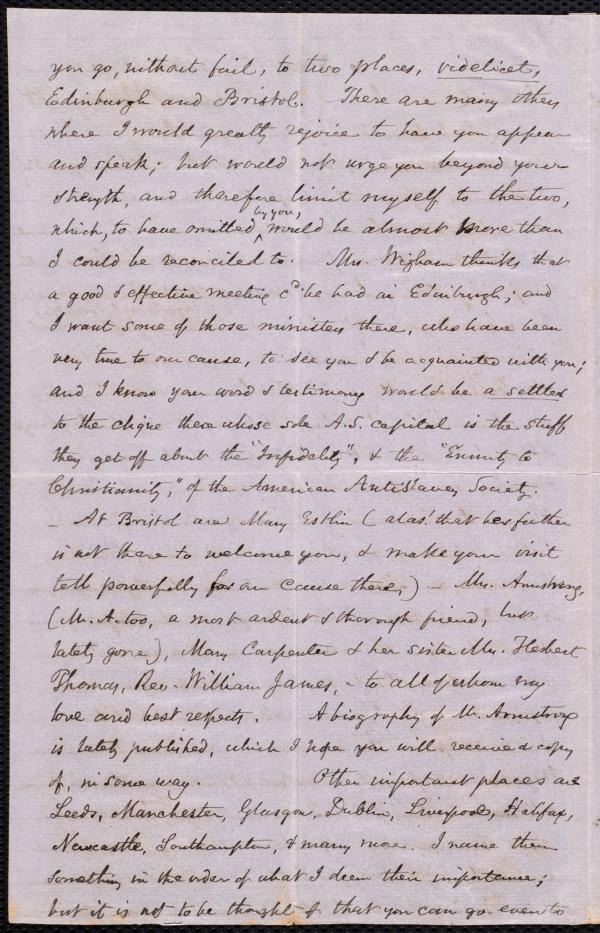 you go, without fail, to two places, videlicet,
Edinburgh and Bristol. There are many others
where I would greatly rejoice to have you appear
and speak; but would not urge you beyond your
strength, and therefore limit myself to the two,
which, to have omitted by you, would be almost more than
I could be reconciled to. Mrs. Wigham thinks that
a good & effective meeting cd. be had in Edinburgh; and
I want some of those ministers there, who have been
very true to our cause, to see you & be acquainted with you;
and I know your word & testimony would be a settler
to the clique there whose sole A.S. capital is the stuff
they get off about the "Infidelity", & the "Enmity to
Christianity," of the American AntiSlavery Society.
- At Bristol are Mary Estlin (alas! that her father
is not there to welcome you, & make your visit
tell powerfully for our cause there,) - Mrs. Armstrong,
(Mr. A. too, a most ardent & thorough friend, but
lately gone), Mary Carpenter & her sister Mrs. Herbert
Thomas, Rev. William James, - to all of whom my
love and best respects. A biography of Mr. Armstrong
is lately published, which I hope you will receive a copy
of, in some way. Other important places are
Leeds, Manchester, Glasgow, Dublin, Liverpool, Halifax,
Newcastle, Southampton, & many more. I name them
something in the order of what I deem their importance;
but it is not to be thought of that you can go even to